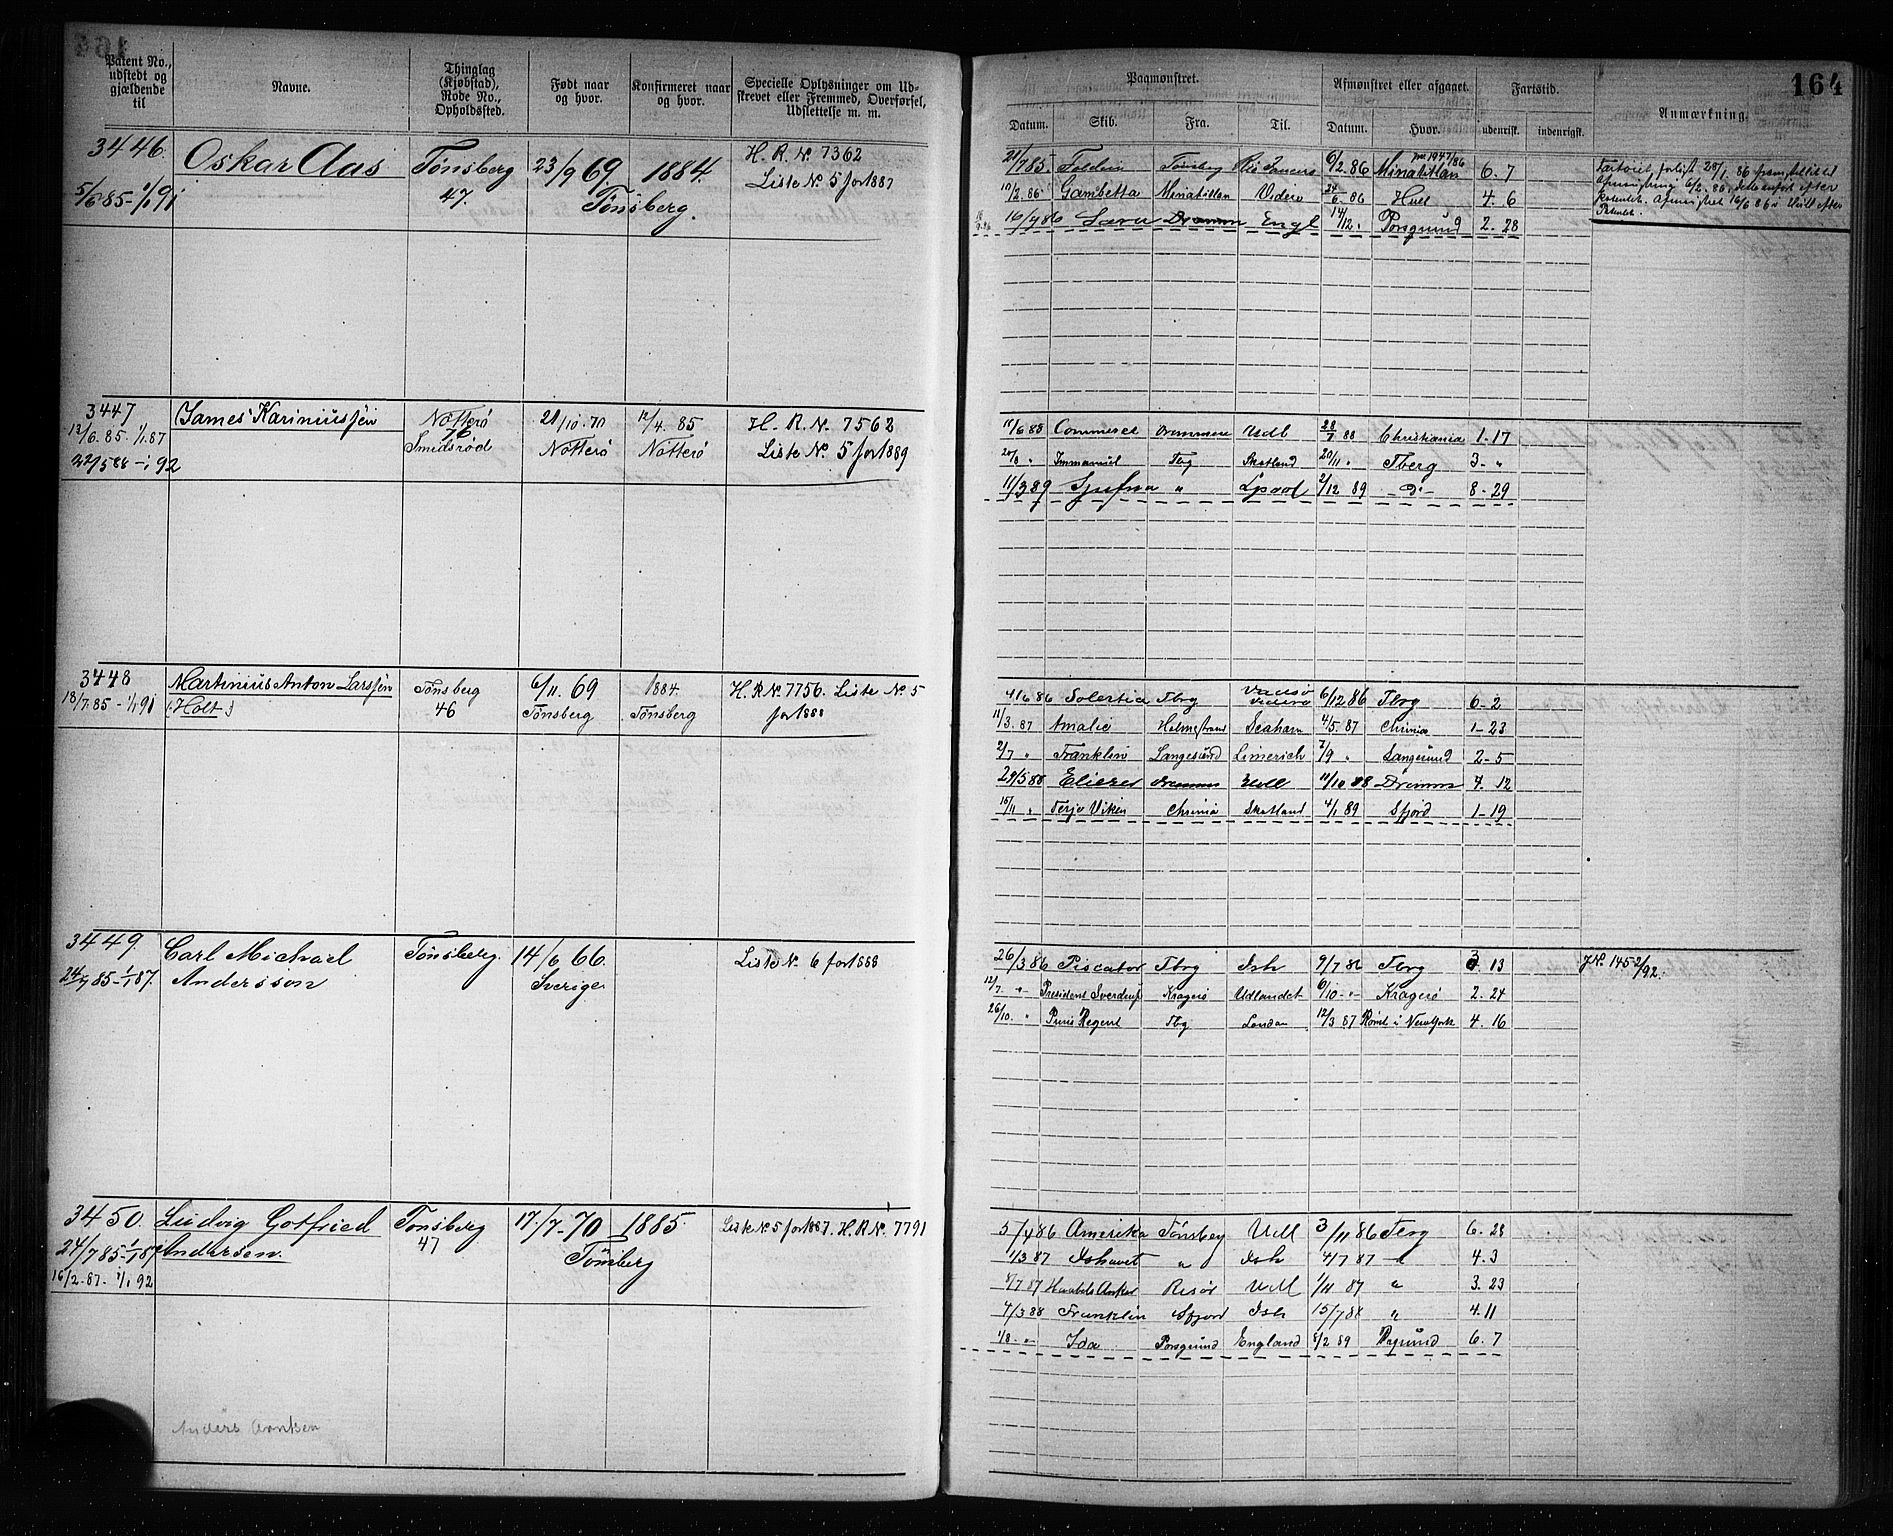 164
Patent No., udstedt og gjældende til
Navne.
Thinglag (Kjøbstad), Rode No., Opholdssted.
Født naar og hvor.
Konfirmeret naar og hvor.
Specielle Oplysninger om Udskrevet eller Fremmed, Overførsel, Udslettelse m. m.
Paamønstret.
Afmønstret eller afgaaet.
Fartstid.
Anmærkning.
Datum. Skib. Fra. Til. Datum. Hvor. udenrisk. indenrigsk.
3446. Oskar Aas Tønsberg 23/9 69 1884. H. R. No 7362
5/6 85 - 1/1 91 47. Tønsberg. Liste No. 5 for 1887
21/7 85. Tønsberg 6/2. 86 Minatitlan 6. 7
10/2. 86 Gambetta Minatitlan Videre 24/6 86 Hull 4. 6
16/9 86 Drammen Engl 14/12 " Porsgrund 2. 28
3447 James Kariniussen Nøtterø 21/10. 70 12/4. 85 H. R. N. 7562
12/6. 85. - 1/1. 87 76 Smidsrød Nøtterø Nøtterø Liste No. 5 for 1889
22/5 88 - 1/1 92
11/6 88 Commerce Drammen Udl 28/7 88 Christiania 1-17
20/8 " Immanuel Tbrg Skotland 20/11 " Tberg 3 - "
11/3 89 " Lpool 2/12 89 - D: - 8 - 29
3448 Martinius Anton Larssen Tønsberg 6/11. 69 1884. H. R. No. 7756. Liste No. 5
18/7. 85 - 1/1 91 (: Holt :) 46 Tønsberg Tønsberg for 1888
4/6 86 Solertia Tbrg videre 6/12 86 Tbrg 6-2
11/3. 87 Amalie Holmestrand Seaham 4/5. 87 Chrnia 1-23
2/7 " Franklin Langesund Limerich 7/9 " Langesund 2-5
29/5 88 Eliezer Drammen Udl 11/10 88 Dramm 4. 12
15/11 " Terje Viken Chrnia Skotland 4/1 89 Sfjord 1-19
3449. Carl Michael Tønsberg. 14/6 66. Liste No. 6 for 1888
24/7 85 - 1/1 87. Anderssön Sverige
26/3 86 Piscator Tbrg Ish 9/7 86 Tbrg 3. 13 J No. 145 2/92.
12/7. " President Sverdrup Kragerø Udlandet 6/10 - " - Kragerø 2. 24
26/10. " Prins Regent Tbg London 12/3 87 Rømt i NewYork 4. 16
3450. Ludvig Gotfried Tønsberg 17/7-70 1885. Liste No. 5 for 1887. H. R No. 7791
24/7 85 - 1/1 87 Andersen. 47 Tønsberg
16/2-87 - 1/1 92
5/4 86 Amerika Tønsberg Udl 3/11 86 Tbrg 6. 28
1/3 87 Ishavet " Ish 4/7 87 " 4. 3
8/7 87 Haabets Anker Risør Udl 1/11 87 " 3. 23
4/3 88 Franklin Sfjord Ish 15/7 88 " 4. 11
1/8 - " - Ida Porsgrund England 8/2 89 6. 7
Anders